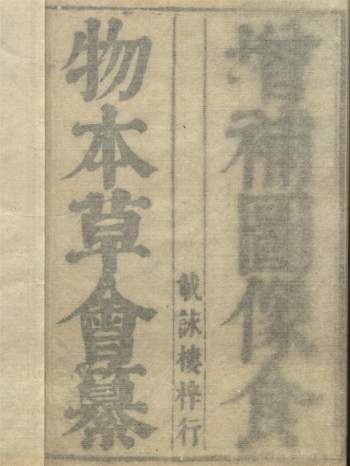 增補圖像食
物本草會纂
載詠樓梓行